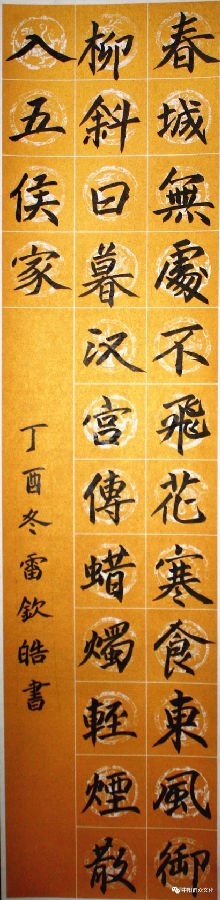 春城無處不飛花寒食東風御
柳斜日暮汉宫傳蜡燭輕煙散
入五侯家
丁酉冬雷欽皓書